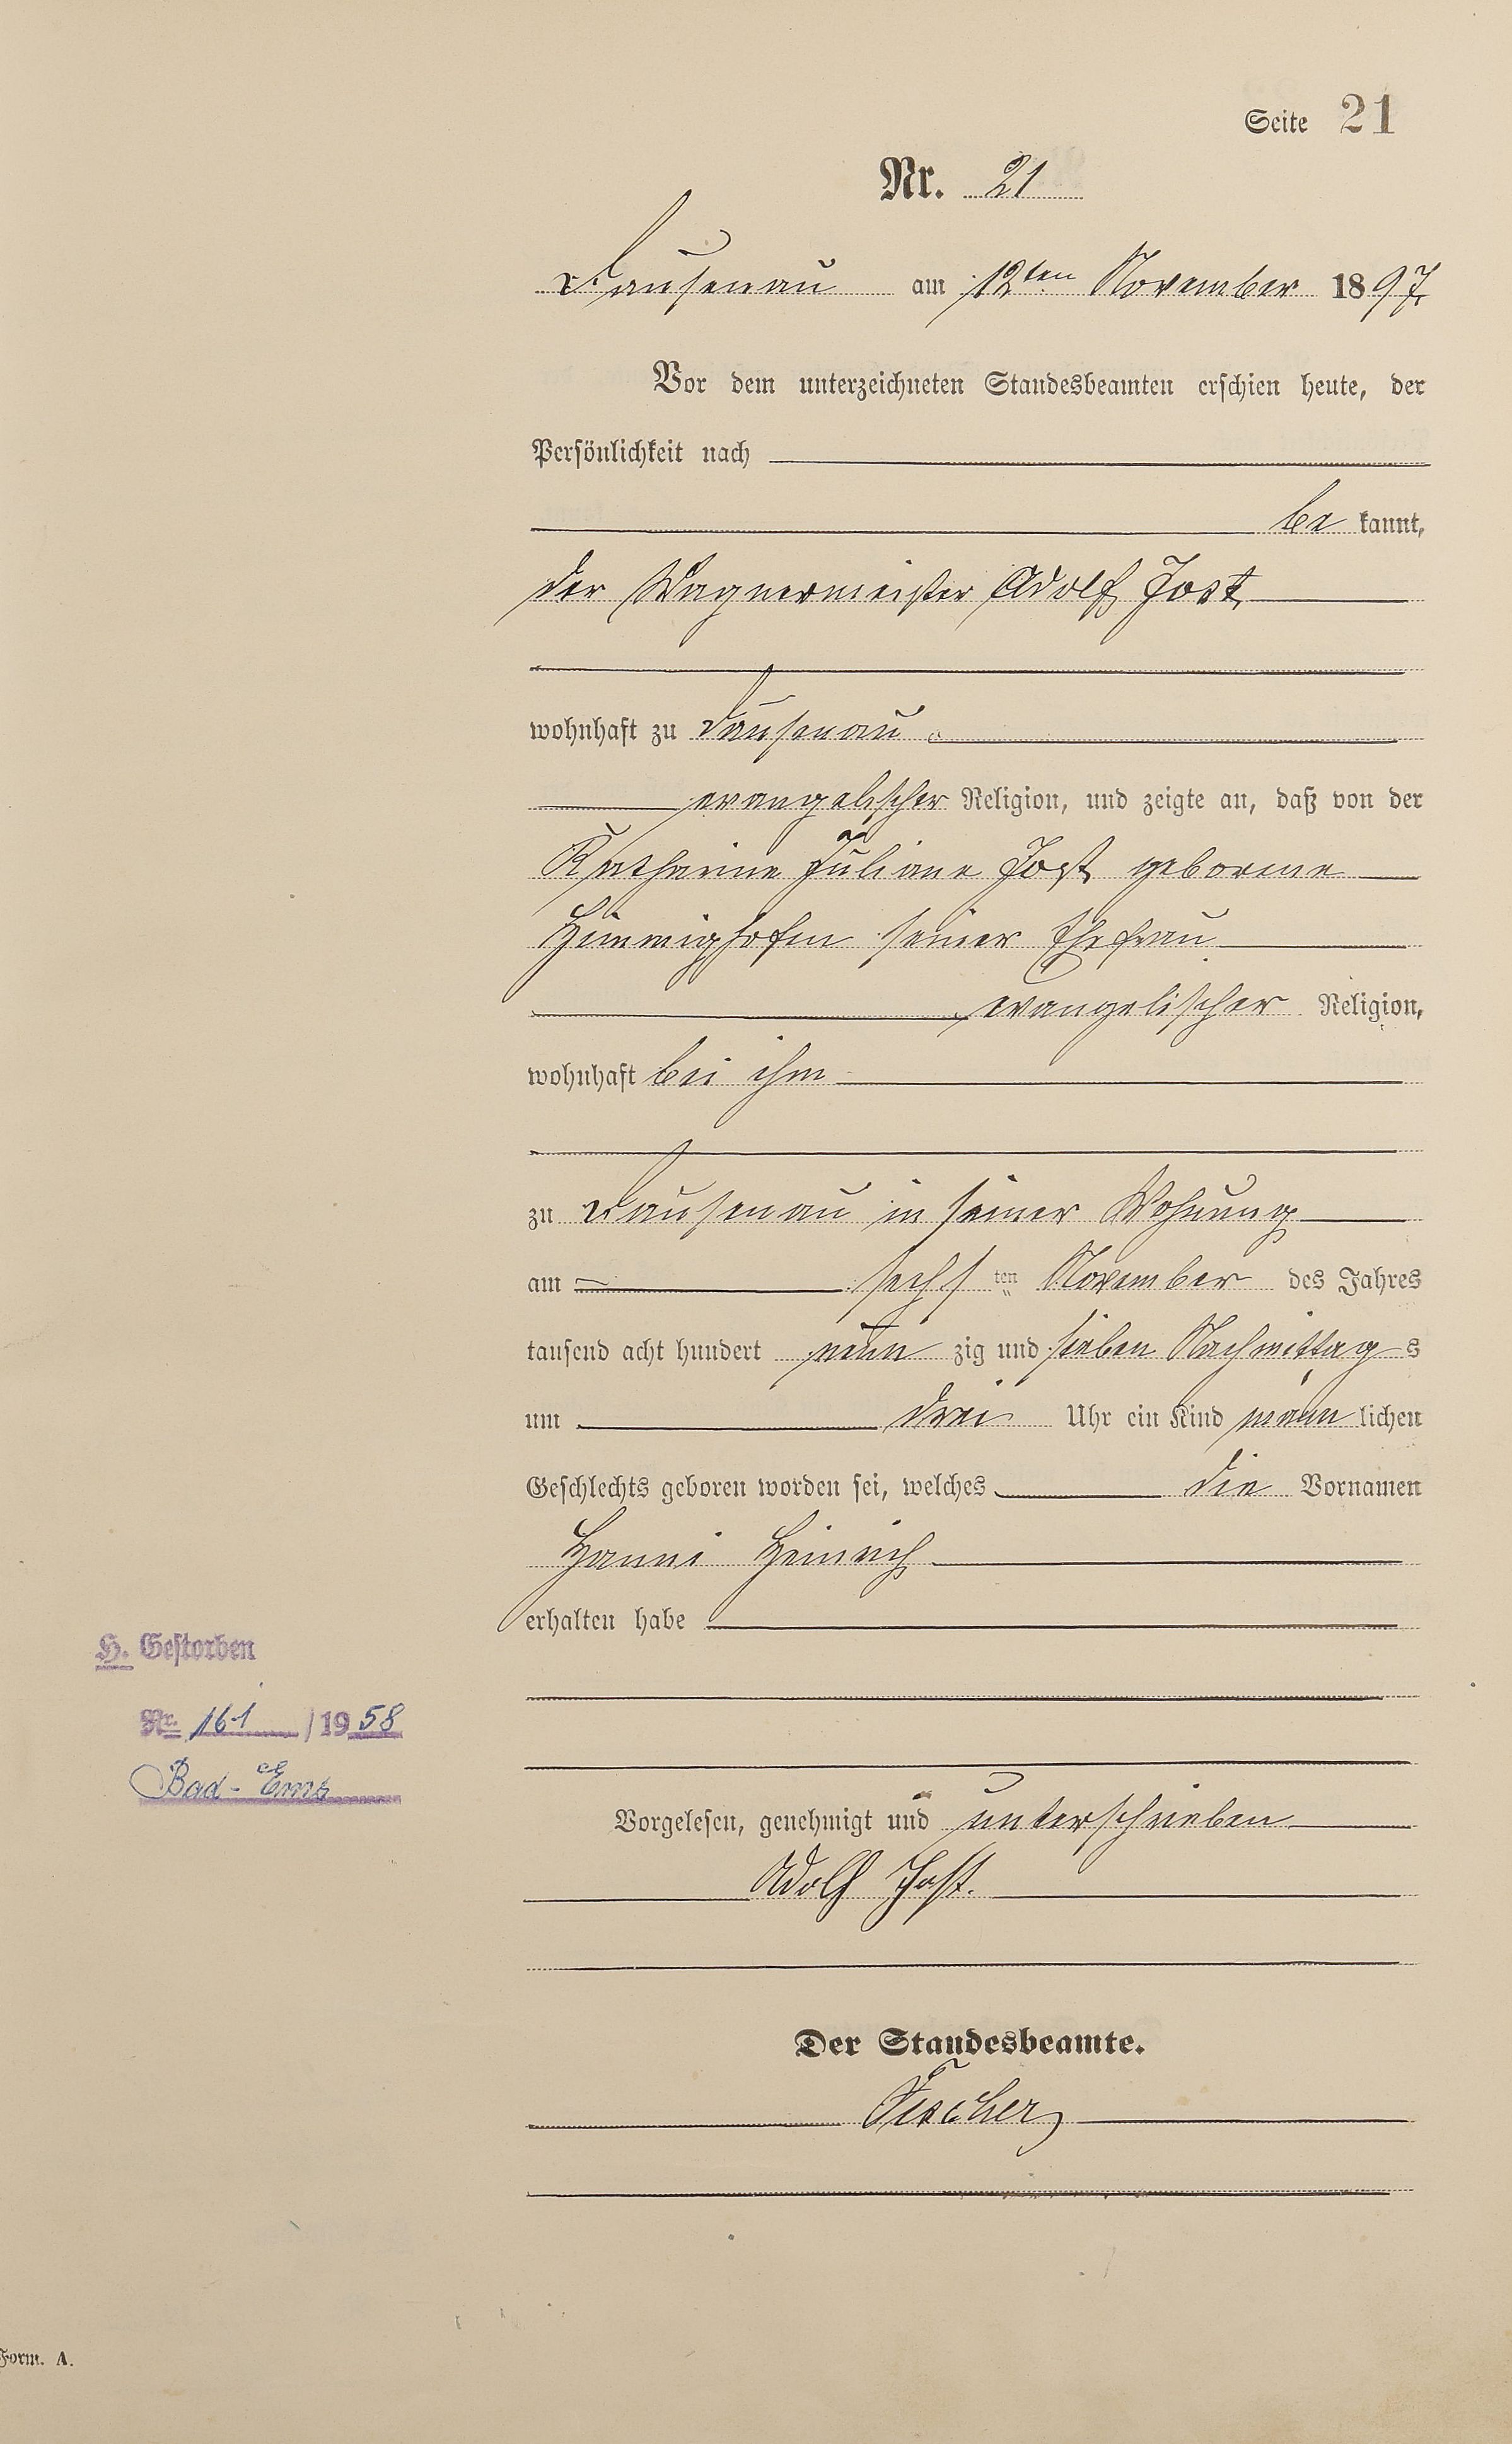 Seite 21
Nr. 21
Dausenau am 12ten November 1897.
Vor dem unterzeichneten Standesbeamten erschien heute, der
Persönlichkeit nach
be kannt,
der Wagnermeister Adolf Jost
wohnhaft zu Dausenau
evangelischer Religion, und zeigte an, daß von der
Katharine Juliane Jost geborene
Himmighofen seiner Ehefrau
evangelischer Religion,
wohnhaft bei ihm
zu Dausenau in seiner Wohnung
am sechs ten November des Jahres
tausend acht hundert neun zig und sieben Nachmittag s
um drei Uhr ein Kind männ lichen
Geschlechts geboren worden sei, welches die Vornamen
Heinrich
erhalten habe
H. Gestorben
Nr. 161 / 1958
Bad-Ems
Vorgelesen, genehmigt und unterschrieben
Adolf Jost.
Der Standesbeamte.
Fischer
Form. A.